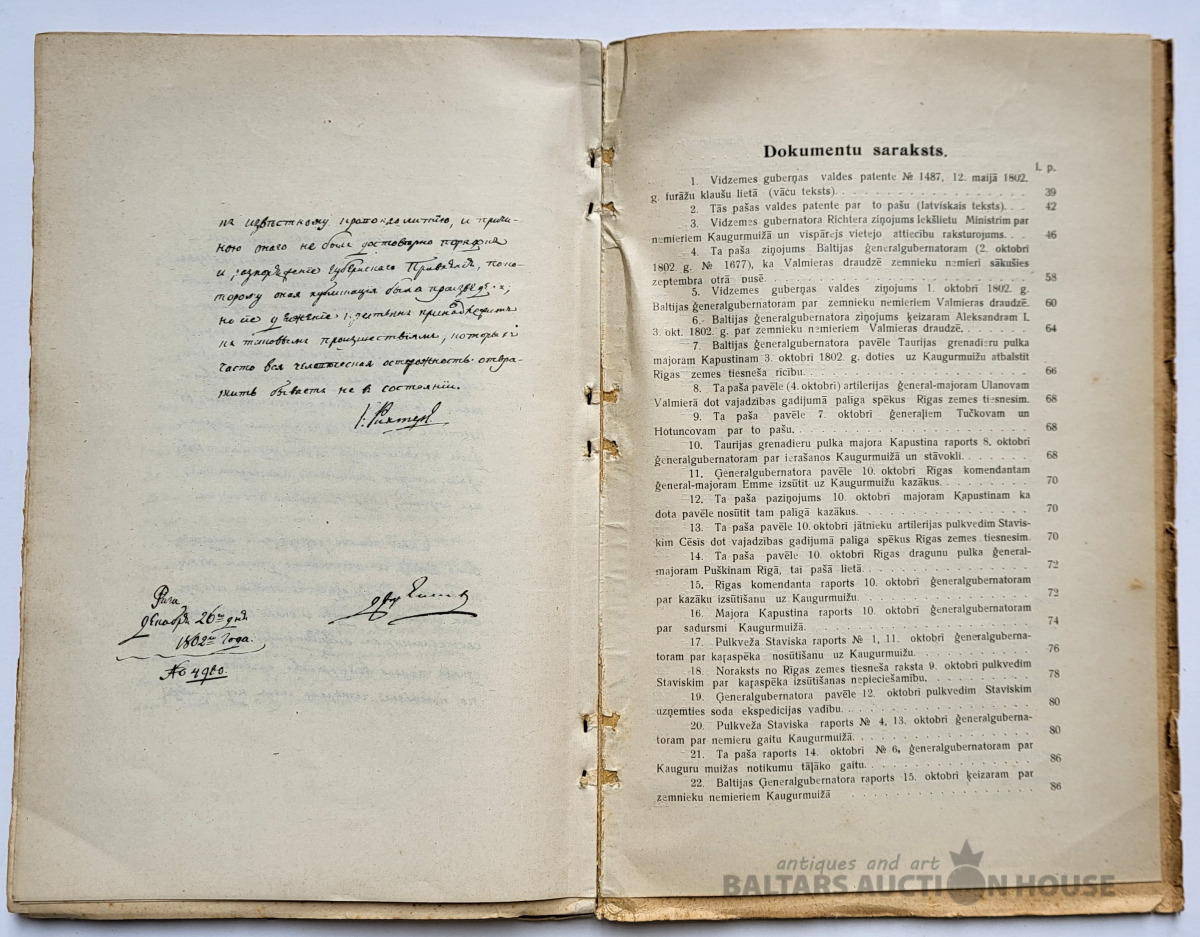 на извѣстному
оного не было достовѣрно
и
торому оная публикація была
на таковымъ произшествіямъ, которыхъ
часто вся человѣческая осторожность отвра-
тить бываетъ не въ состояніи.
Рихтеръ
Рига
декабря 26го дня
1802го Года.
Dokumentu saraksts.
l. p.
1. Vidzemes guberņas valdes patente № 1487, 12. maijā 1802.
g. furāžu klaušu lietā (vācu teksts). 39
2. Tās pašas valdes patente par to pašu (latviskais teksts). . 42
3. Vidzemes gubernatora Richtera ziņojums Iekšlietu Ministrim par
nemieriem Kaugurmuižā un vispārējs vietejo attiecību raksturojums. . . 46
4. Ta paša ziņojums Baltijas ģeneralgubernatoram (2. oktobrī
1802. g. № 1677), ka Valmieras draudzē zemnieku nemieri sākušies
zeptembra otrā pusē. 58
5. Vidzemes guberņas valdes ziņojums 1. oktobrī 1802. g.
Baltijas ģeneralgubernatoram par zemnieku nemieriem Valmieras draudzē. 60
6. Baltijas ģeneralgubernatora ziņojums ķeizaram Aleksandram I.
3. okt. 1802. g. par zemnieku nemieriem Valmieras draudzē. 64
7. Baltijas ģeneralgubernatora pavēle Taurijas grenadieru pulka
majoram Kapustinam 3. oktobrī 1802. g. doties uz Kaugurmuižu atbalstīt
Rīgas zemes tiesneša rīcību. 66
8. Ta paša pavēle (4. oktobrī) artilerijas ģeneral-majoram Ulanovam
Valmierā dot vajadzības gadijumā palīga spēkus Rīgas zemes tiesnesim. 68
9. Ta paša pavēle 7. oktobrī ģeneraļiem Tučkovam un
Hotuncovam par to pašu. 68
10. Taurijas grenadieru pulka majora Kapustina raports 8. oktobrī
ģeneralgubernatoram par ierašanos Kaugurmuižā un stāvokli. 68
11. Ģeneralgubernatora pavēle 10. oktobrī Rīgas komendantam
ģeneral-majoram Emme izsūtīt uz Kaugurmuižu kazākus. 70
12. Ta paša paziņojums 10. oktobrī majoram Kapustinam ka
dota pavēle nosūtīt tam palīgā kazākus. 70
13. Ta paša pavēle 10. oktobrī jātnieku artilerijas pulkvedim Stavis-
kim Cēsīs dot vajadzības gadijumā palīga spēkus Rīgas zemes tiesnesim. 70
14. Ta paša pavēle 10. oktobrī Rīgas dragunu pulka ģeneral-
majoram Puškinam Rīgā, tai pašā lietā. 72
15. Rīgas komendanta raports 10. oktobrī ģeneralgubernatoram
par kazāku izsūtīšanu uz Kaugurmuižu. 72
16. Majora Kapustina raports 10. oktobrī ģeneralgubernatoram
par sadursmi Kaugurmuižā. 74
17. Pulkveža Staviska raports № 1, 11. oktobrī ģeneralguberna-
toram par kaŗaspēka nosūtīšanu uz Kaugurmuižu. 76
18. Noraksts no Rīgas zemes tiesneša raksta 9. oktobrī pulkvedim
Staviskim par kaŗaspēka izsūtīšanas nepieciešamību. 78
19. Ģeneralgubernatora pavēle 12. oktobrī pulkvedim Staviskim
uzņemties soda ekspedicijas vadību. 80
20. Pulkveža Staviska raports № 4, 13. oktobrī ģeneralguberna-
toram par nemieru gaitu Kaugurmuižā. 80
21. Ta paša raports 14. oktobrī № 6, ģeneralgubernatoram par
Kauguru muižas notikumu tāļāko gaitu. 86
22. Baltijas Ģeneralgubernatora raports 15. oktobrī ķeizaram par
zemnieku nemieriem Kaugurmuižā 86
antiques and art
BALTARS AUCTION HOUSE